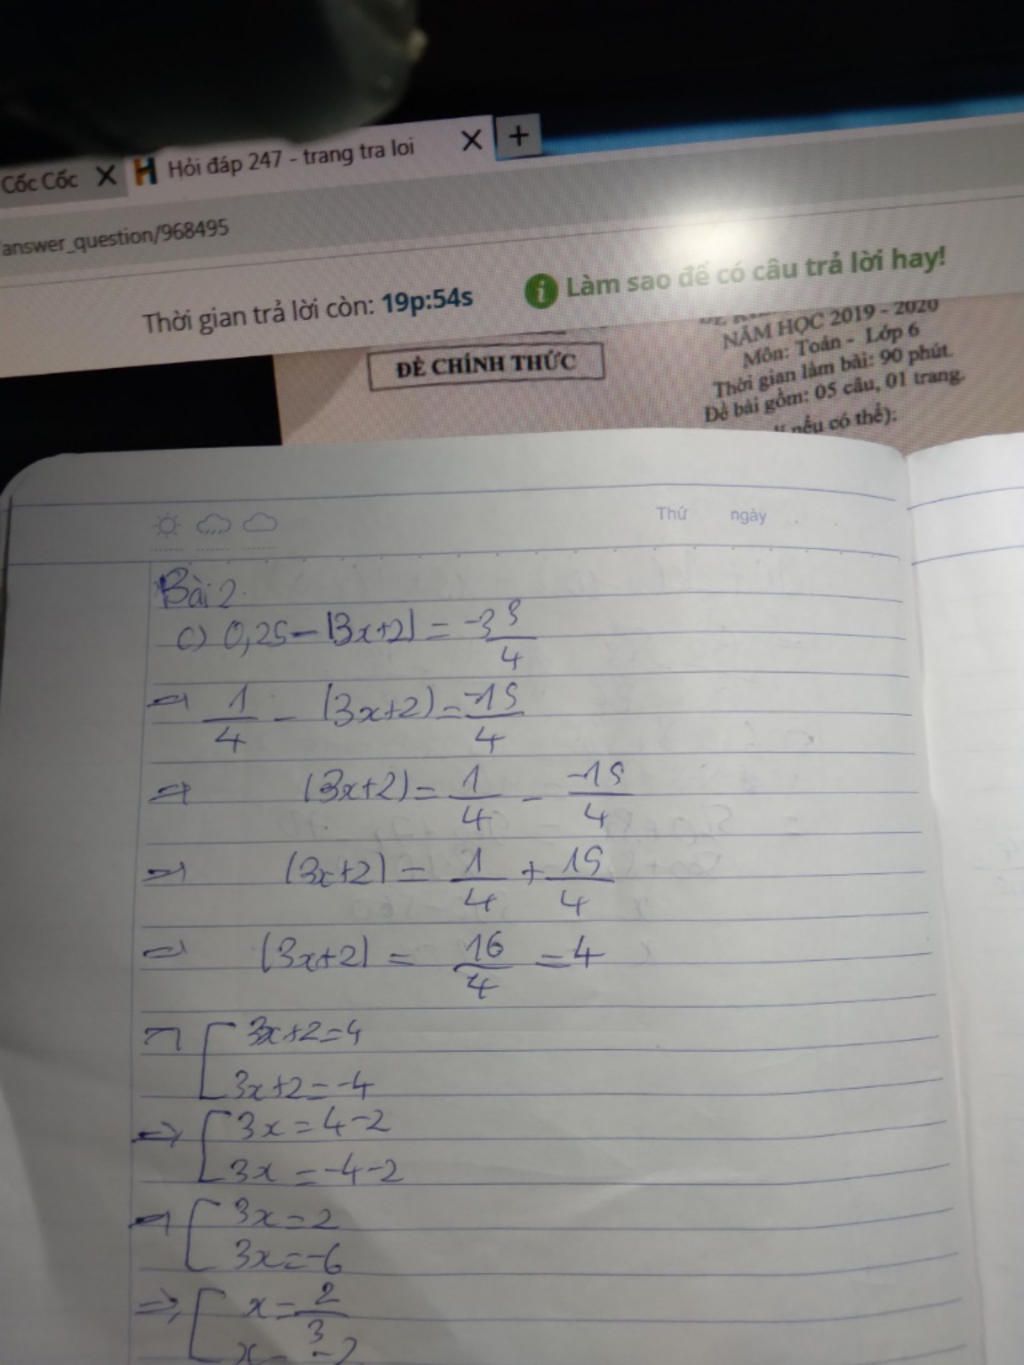 Cốc Cốc X H Hỏi đáp 247 - trang tra loi X +
/answer_question/968495
Thời gian trả lời còn: 19p:54s
i Làm sao để có câu trả lời hay!
NĂM HỌC 2019 - 2020
ĐỀ CHÍNH THỨC
Môn: Toán - Lớp 6
Thời gian làm bài: 90 phút.
Đề bài gồm: 05 câu, 01 trang.
nếu có thể):
Thứ ngày
Bài 2.
c) 0,25 - |3x+2| = -3 3/4
=> 1/4 - |3x+2| = -15/4
=> |3x+2| = 1/4 - -15/4
=> |3x+2| = 1/4 + 15/4
=> |3x+2| = 16/4 = 4
=> [ 3x+2=4
3x+2=-4
=> [ 3x = 4-2
3x = -4-2
=> [ 3x = 2
3x = -6
=> [ x = 2/3
x = -2